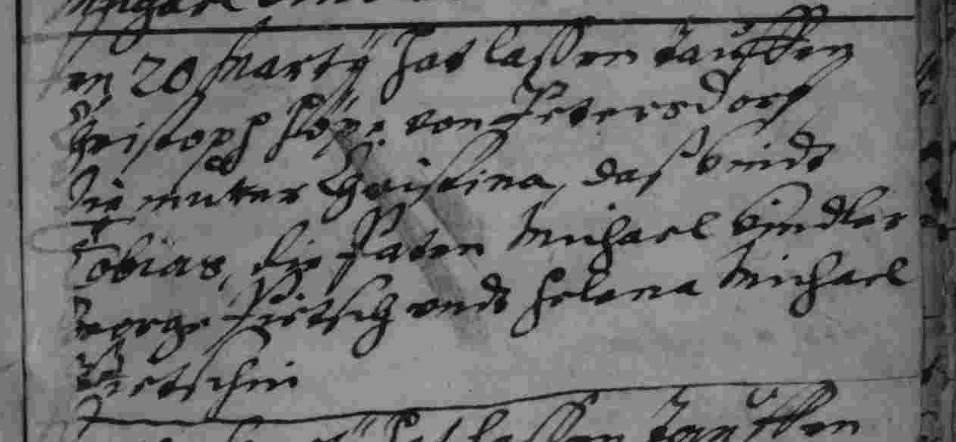 Michael
en 20 Marty hat lassen tauffen
Christoph von Petersdorf
Die mutter Christina, daß kindt
Tobias, die Paten Michael
George Pietsch undt Helena Michael
Pietschin
hat lassen Tauffen